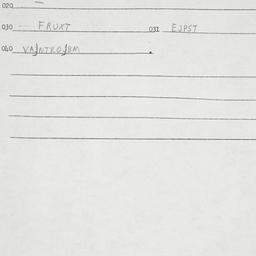 020
030 — FRUXT 032 EJPST
040 VA∫NTRO∫BM